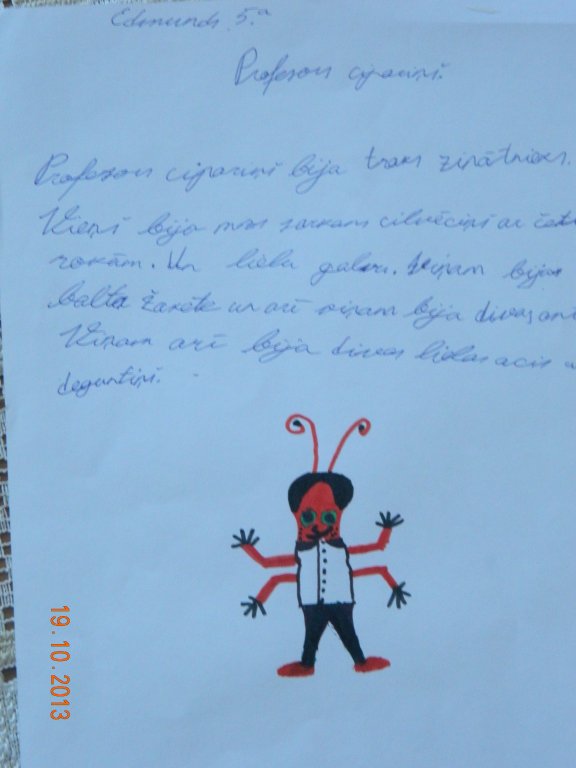 Edmunds 5.a
Profesors cipariņš.
Profesors cipariņš bija traks zinātnieks.
Viņš bija mazs sarkans cilvēciņš ar četr
rokām. Un lielu galvu. Viņam bija
balta žakete un arī viņam bija divas ant
Viņam arī bija divas lielas acis u
deguntiņš.
19.10.2013